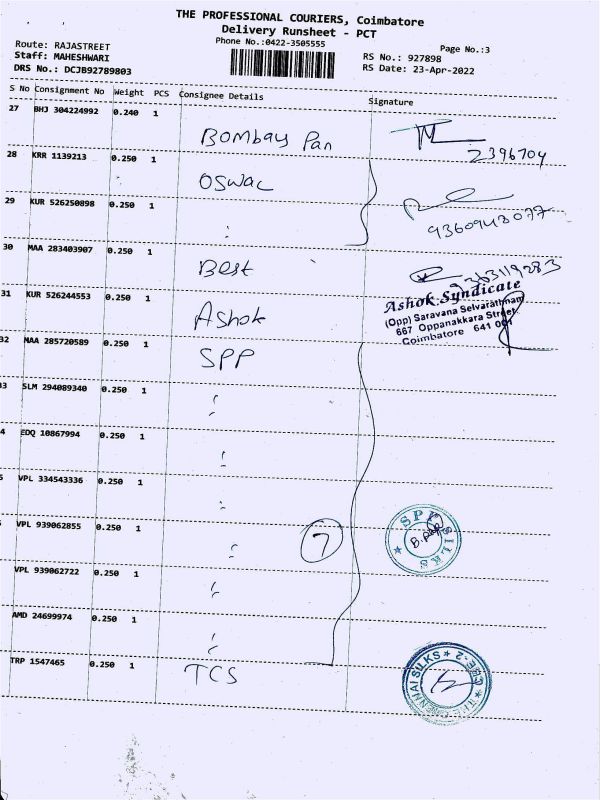 THE PROFESSIONAL COURIERS, Coimbatore
Delivery Runsheet - PCT
Phone No.:0422-3505555
Page No.:3
Route: RAJASTREET
Staff: MAHESHWARI
DRS No.: DCJB92789803
RS No.: 927898
RS Date: 23-Apr-2022
S No Consignment No Weight PCS Consignee Details Signature
27 BHJ 304224992 0.240 1 Bombay Pan
2396704
28 KRR 1139213 0.250 1 OSWAL
29 KUR 526250898 0.250 1 :
30 MAA 283403907 0.250 1 Best
31 KUR 526244553 0.250 1 Ashok
Ashok Syndicate
(Opp) Saravana Selvarathnam
667 Oppanakkara Street
Coimbatore 641 001
32 MAA 285720589 0.250 1 SPP
3 SLM 294089340 0.250 1 :
4 EDQ 10867994 0.250 1 :
VPL 334543336 0.250 1 :
VPL 939062855 0.250 1 :
7
SPP SILKS
VPL 939062722 0.250 1 :
AMD 24699974 0.250 1 :
TRP 1547465 0.250 1 TCS
THE CHENNAI SILKS CBE-2